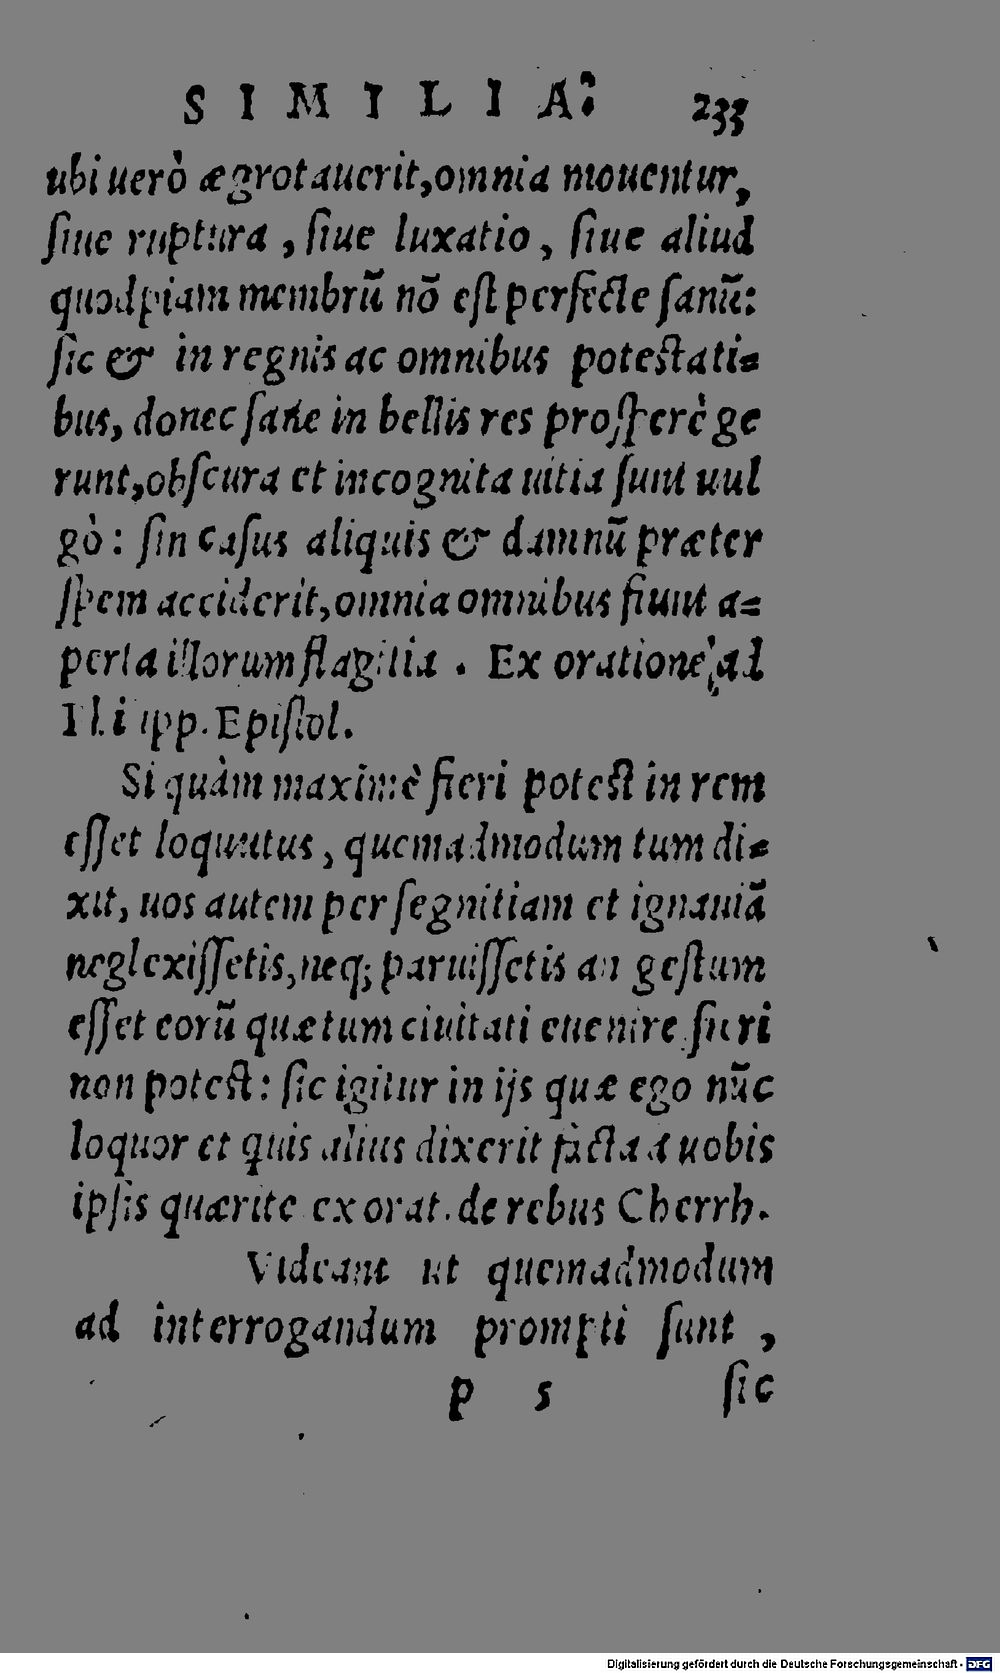 SIMILIA. 233
ubi uerò ægrotauerit, omnia mouentur,
ſiue ruptura, ſiue luxatio, ſiue aliud
quodpiam membrũ nõ eſt perfecte ſanũ:
ſic & in regnis ac omnibus poteſtati=
bus, donec ſane in bellis res proſperè ge
runt, obſcura et incognita uitia ſunt uul
gò: ſin caſus aliquis & damnũ præter
ſpem acciderit, omnia omnibus fiunt a=
perta illorum flagitia. Ex oratione ad
Epiſtol.
Si quàm maximè fieri poteſt in rem
eſſet loquutus, quemadmodum tum di=
xit, uos autem per ſegnitiam et ignauiã
neglexiſſetis, neq; paruiſſetis an geſtum
eſſet eorũ quæ tum ciuitati euenire fieri
non poteſt: ſic igitur in ijs quæ ego nũc
loquor et quis alius dixerit facta a uobis
ipſis quærite ex orat. de rebus Cherrh.
Videant ut quemadmodum
ad interrogandum prompti ſunt,
p 5 ſic
Digitalisierung gefördert durch die Deutsche Forschungsgemeinschaft - DFG